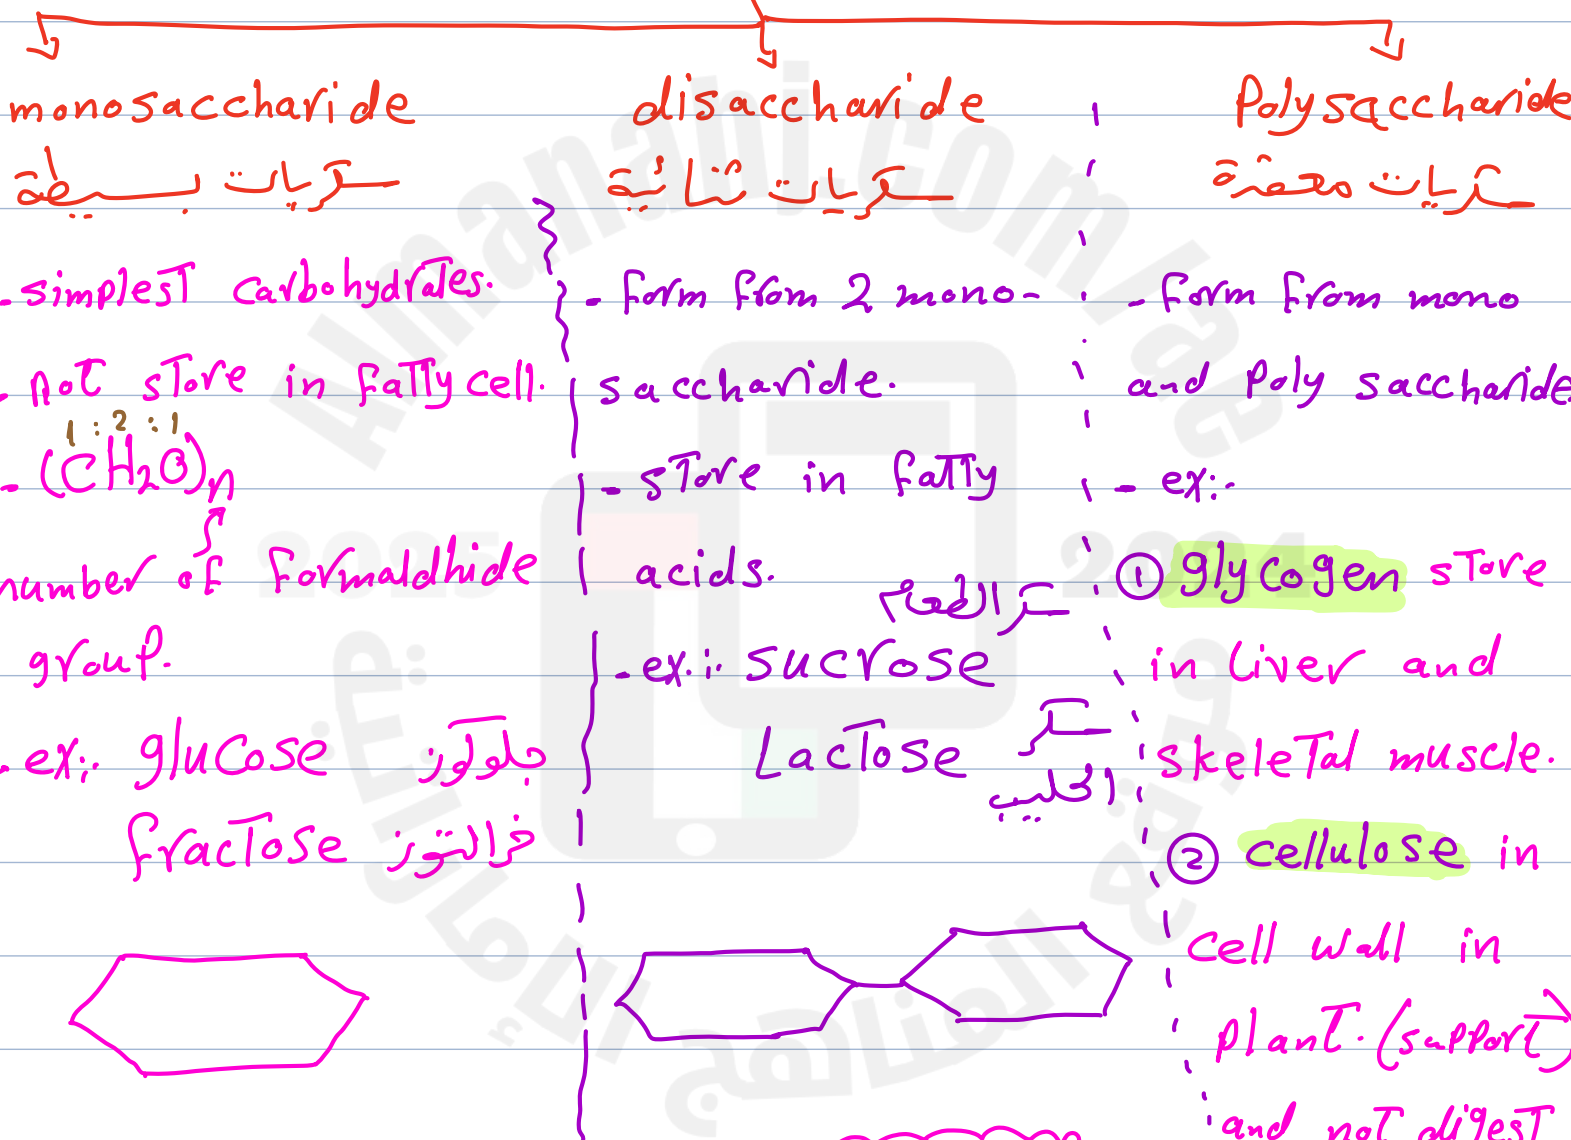 monosaccharide
سكريات بسيطة
- simplest carbohydrates.
- not store in fatty cell.
1 : 2 : 1
- (CH2O)n
number of formaldhide
group.
- ex:- glucose جلوكوز
fractose فراكتوز
disaccharide
سكريات ثنائية
- form from 2 mono-
saccharide.
- store in fatty
acids.
سكر الطعام
- ex:- sucrose
Lactose سكر
الحليب
Polysaccharide
سكريات معقدة
- form from mono
and Poly saccharide
- ex:-
① glycogen store
in liver and
skeletal muscle.
② cellulose in
cell wall in
plant. (support)
and not digest
Almanahj.com/ae
2024
2025
موقع المناهج الإماراتية